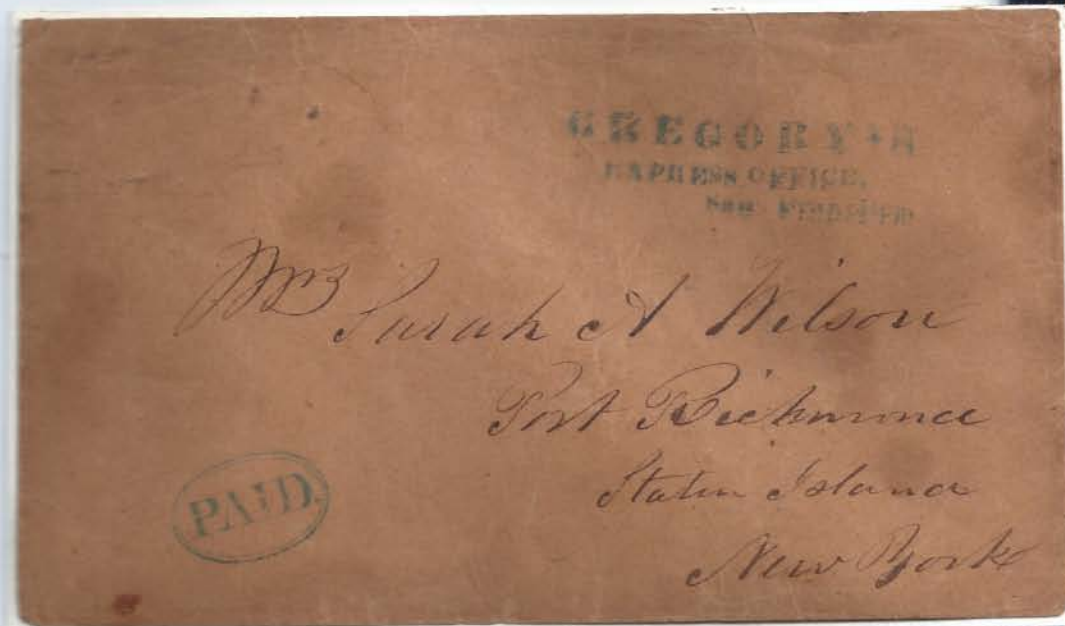 GREGORY'S
EXPRESS OFFICE,
San Francisco
Mrs Sarah A Wilson
Port Richmond
Staten Island
New York
PAID.